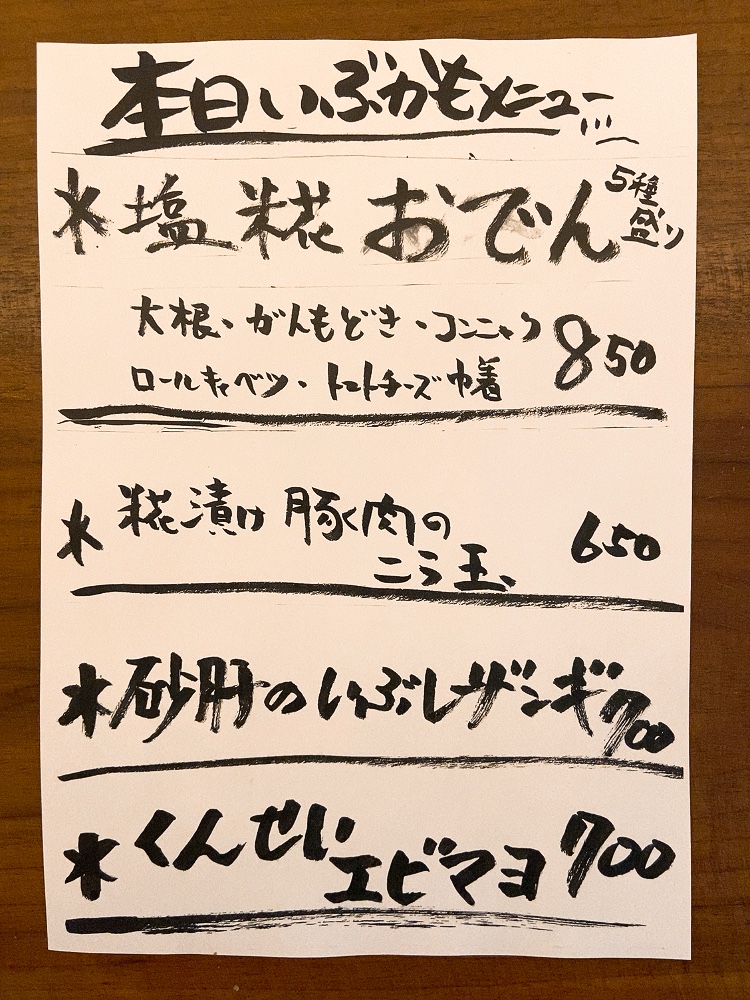 本日いぶかもメニュー
＊塩糀おでん 5種盛り
大根・がんもどき・コンニャク 850
ロールキャベツ・トマトチーズ巾着
＊糀漬け豚く肉の 650
ニラ玉
＊砂肝のいぶしザンギ 700
＊くんせい 700
エビマヨ